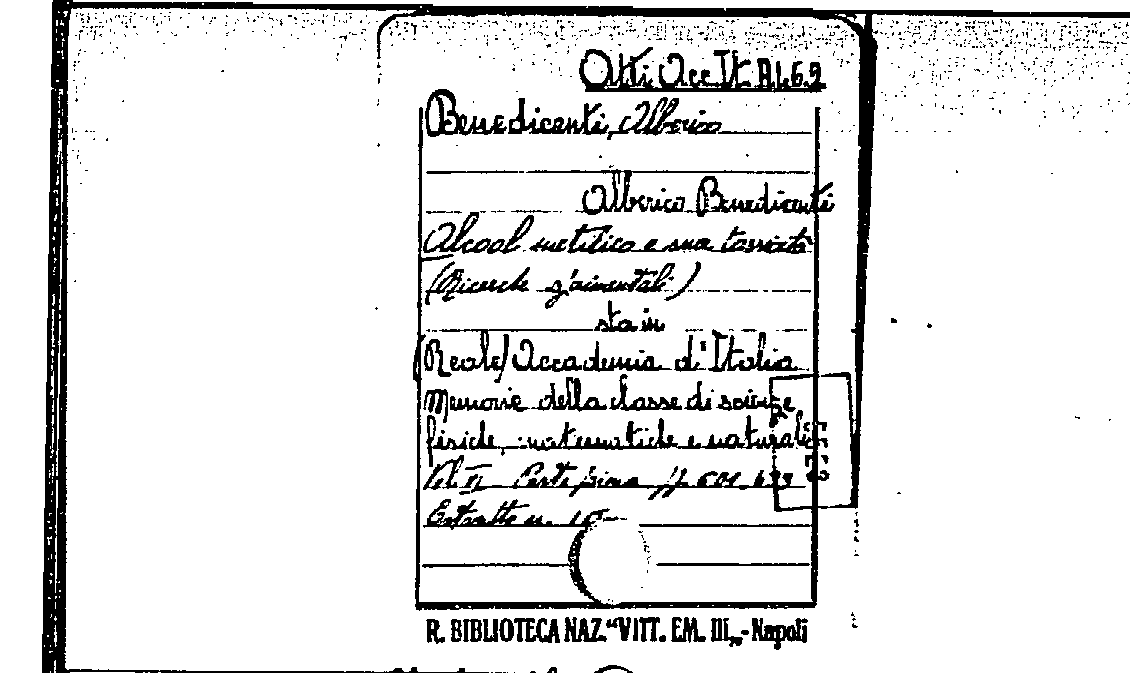 Atti Acc It A.I.6.9
Benedicenti, Alberico
Alberico Benedicenti
Alcool metilico e sua tossicità
(Ricerche
sta in
(Reale) Accademia d'Italia
Memorie della classe di scienze
fisiche, matematiche e naturali
Vol. II - Parte prima pp.
Estratto n. 15
R. BIBLIOTECA NAZ. "VITT. EM. III„-Napoli